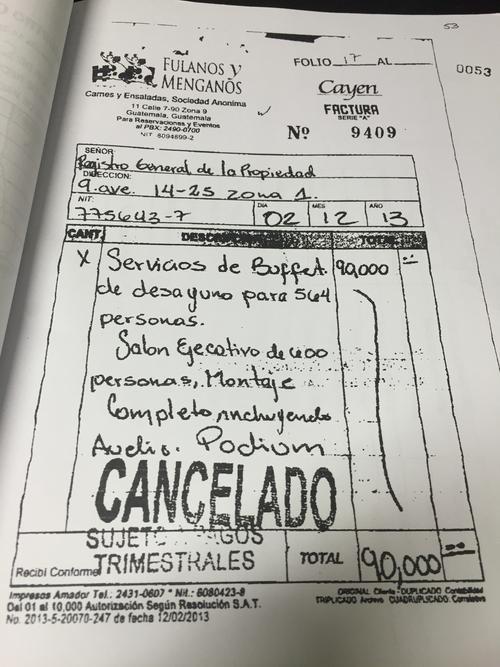 53
FOLIO 17 AL
0053
FULANOS Y
MENGANOS
Carnes y Ensaladas, Sociedad Anonima
11 Calle 7-90 Zona 9
Guatemala, Guatemala
Para Reservaciones y Eventos
al PBX: 2490-0700
NIT: 6094899-2
Cayen
FACTURA
SERIE "A"
Nº 9409
SEÑOR:
Registro General de la Propiedad
DIRECCION:
9. ave. 14-25 zona 1.
NIT:
775643-7
DIA 02 MES 12 AÑO 13
CANT. TOTAL
X Servicios de Buffet 90,000
de desayuno para 564
personas.
Salon Ejecutivo de 600
personas, Montaje
Completo, incluyendo
Audio. Podium
CANCELADO
SUJETO A PAGOS
TRIMESTRALES
Recibí Conforme
TOTAL 90,000
Impresos Amador Tel.: 2431-0607 * Nit.: 6080423-8
Del 01 al 10,000 Autorización Según Resolución S.A.T.
No. 2013-5-20070-247 de fecha 12/02/2013
ORIGINAL Cliente - DUPLICADO Contabilidad
TRIPLICADO Archivo CUADRUPLICADO Correlativo